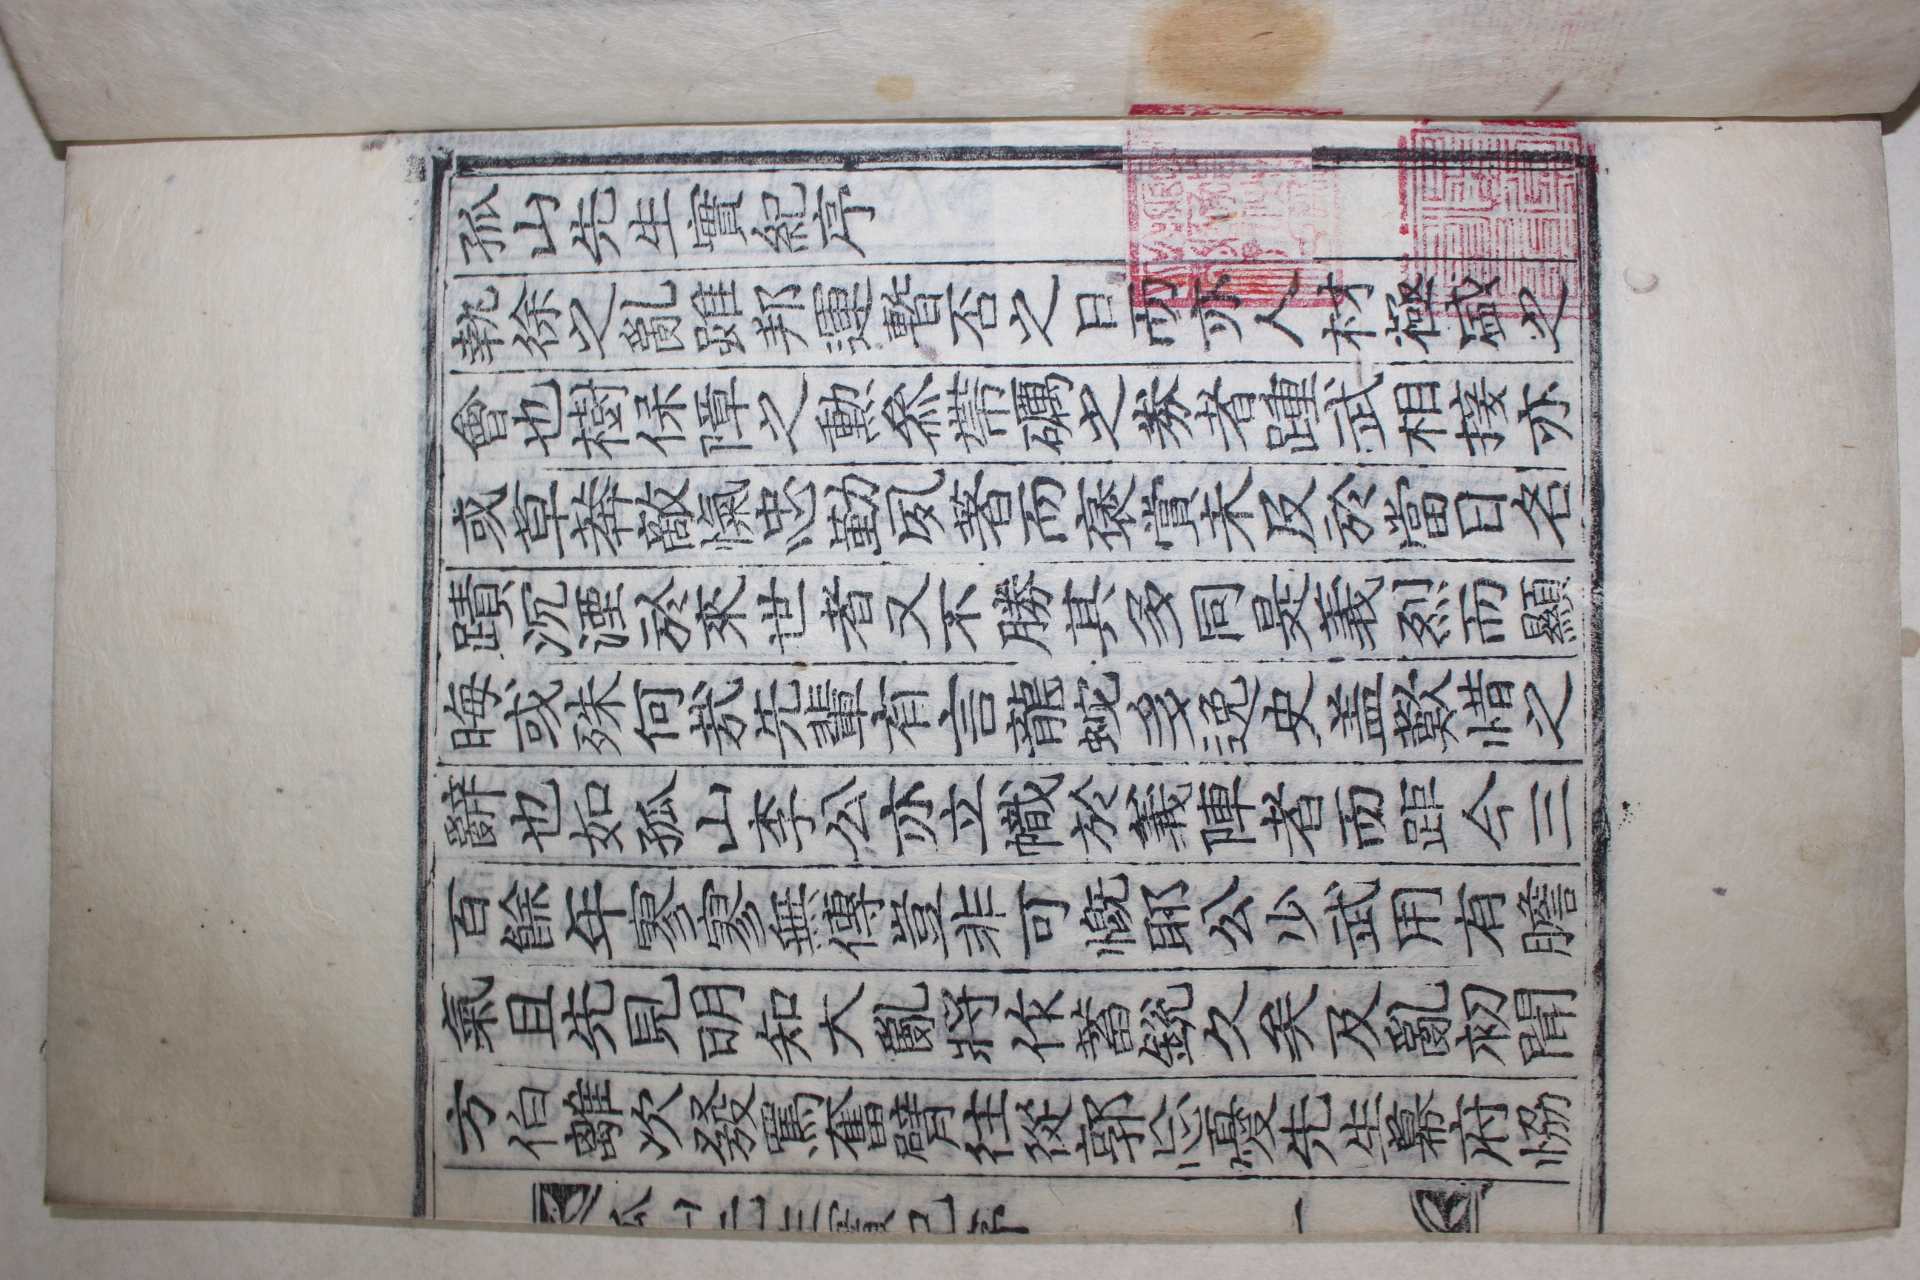 孤山先生實紀序
執徐之亂雖邦運暫否之日而亦人材極盛之
會也樹保障之勲叅帶礪之券者踵武相接亦
或草莽敵愾忠勤夙著而褒賞未及於當日名
蹟沉湮於來世者又不勝其多同是義烈而顯
晦或殊何㢤先輩有言龍蛇多逸史盖歎惜之
辭也如孤山李公亦立幟於義陣者而距今三
百餘年寥寥無傳豈非可慨耶公少武用有膽
氣且先見明知大亂將作蓄銳久矣及亂初聞
方伯離次發罵奮臂往從郭忘憂先生幕府恊
孤山先生實紀序
一